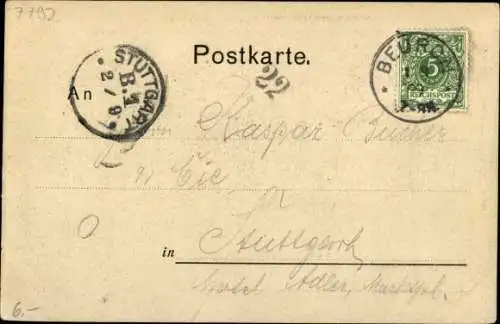 7792
Postkarte.
STUTTGART
B.1
2/9
BEURON
5
REICHSPOST
22
An
Kaspar Bucher
in
Stuttgart
Hotel Adler, Marktpl.
6.-